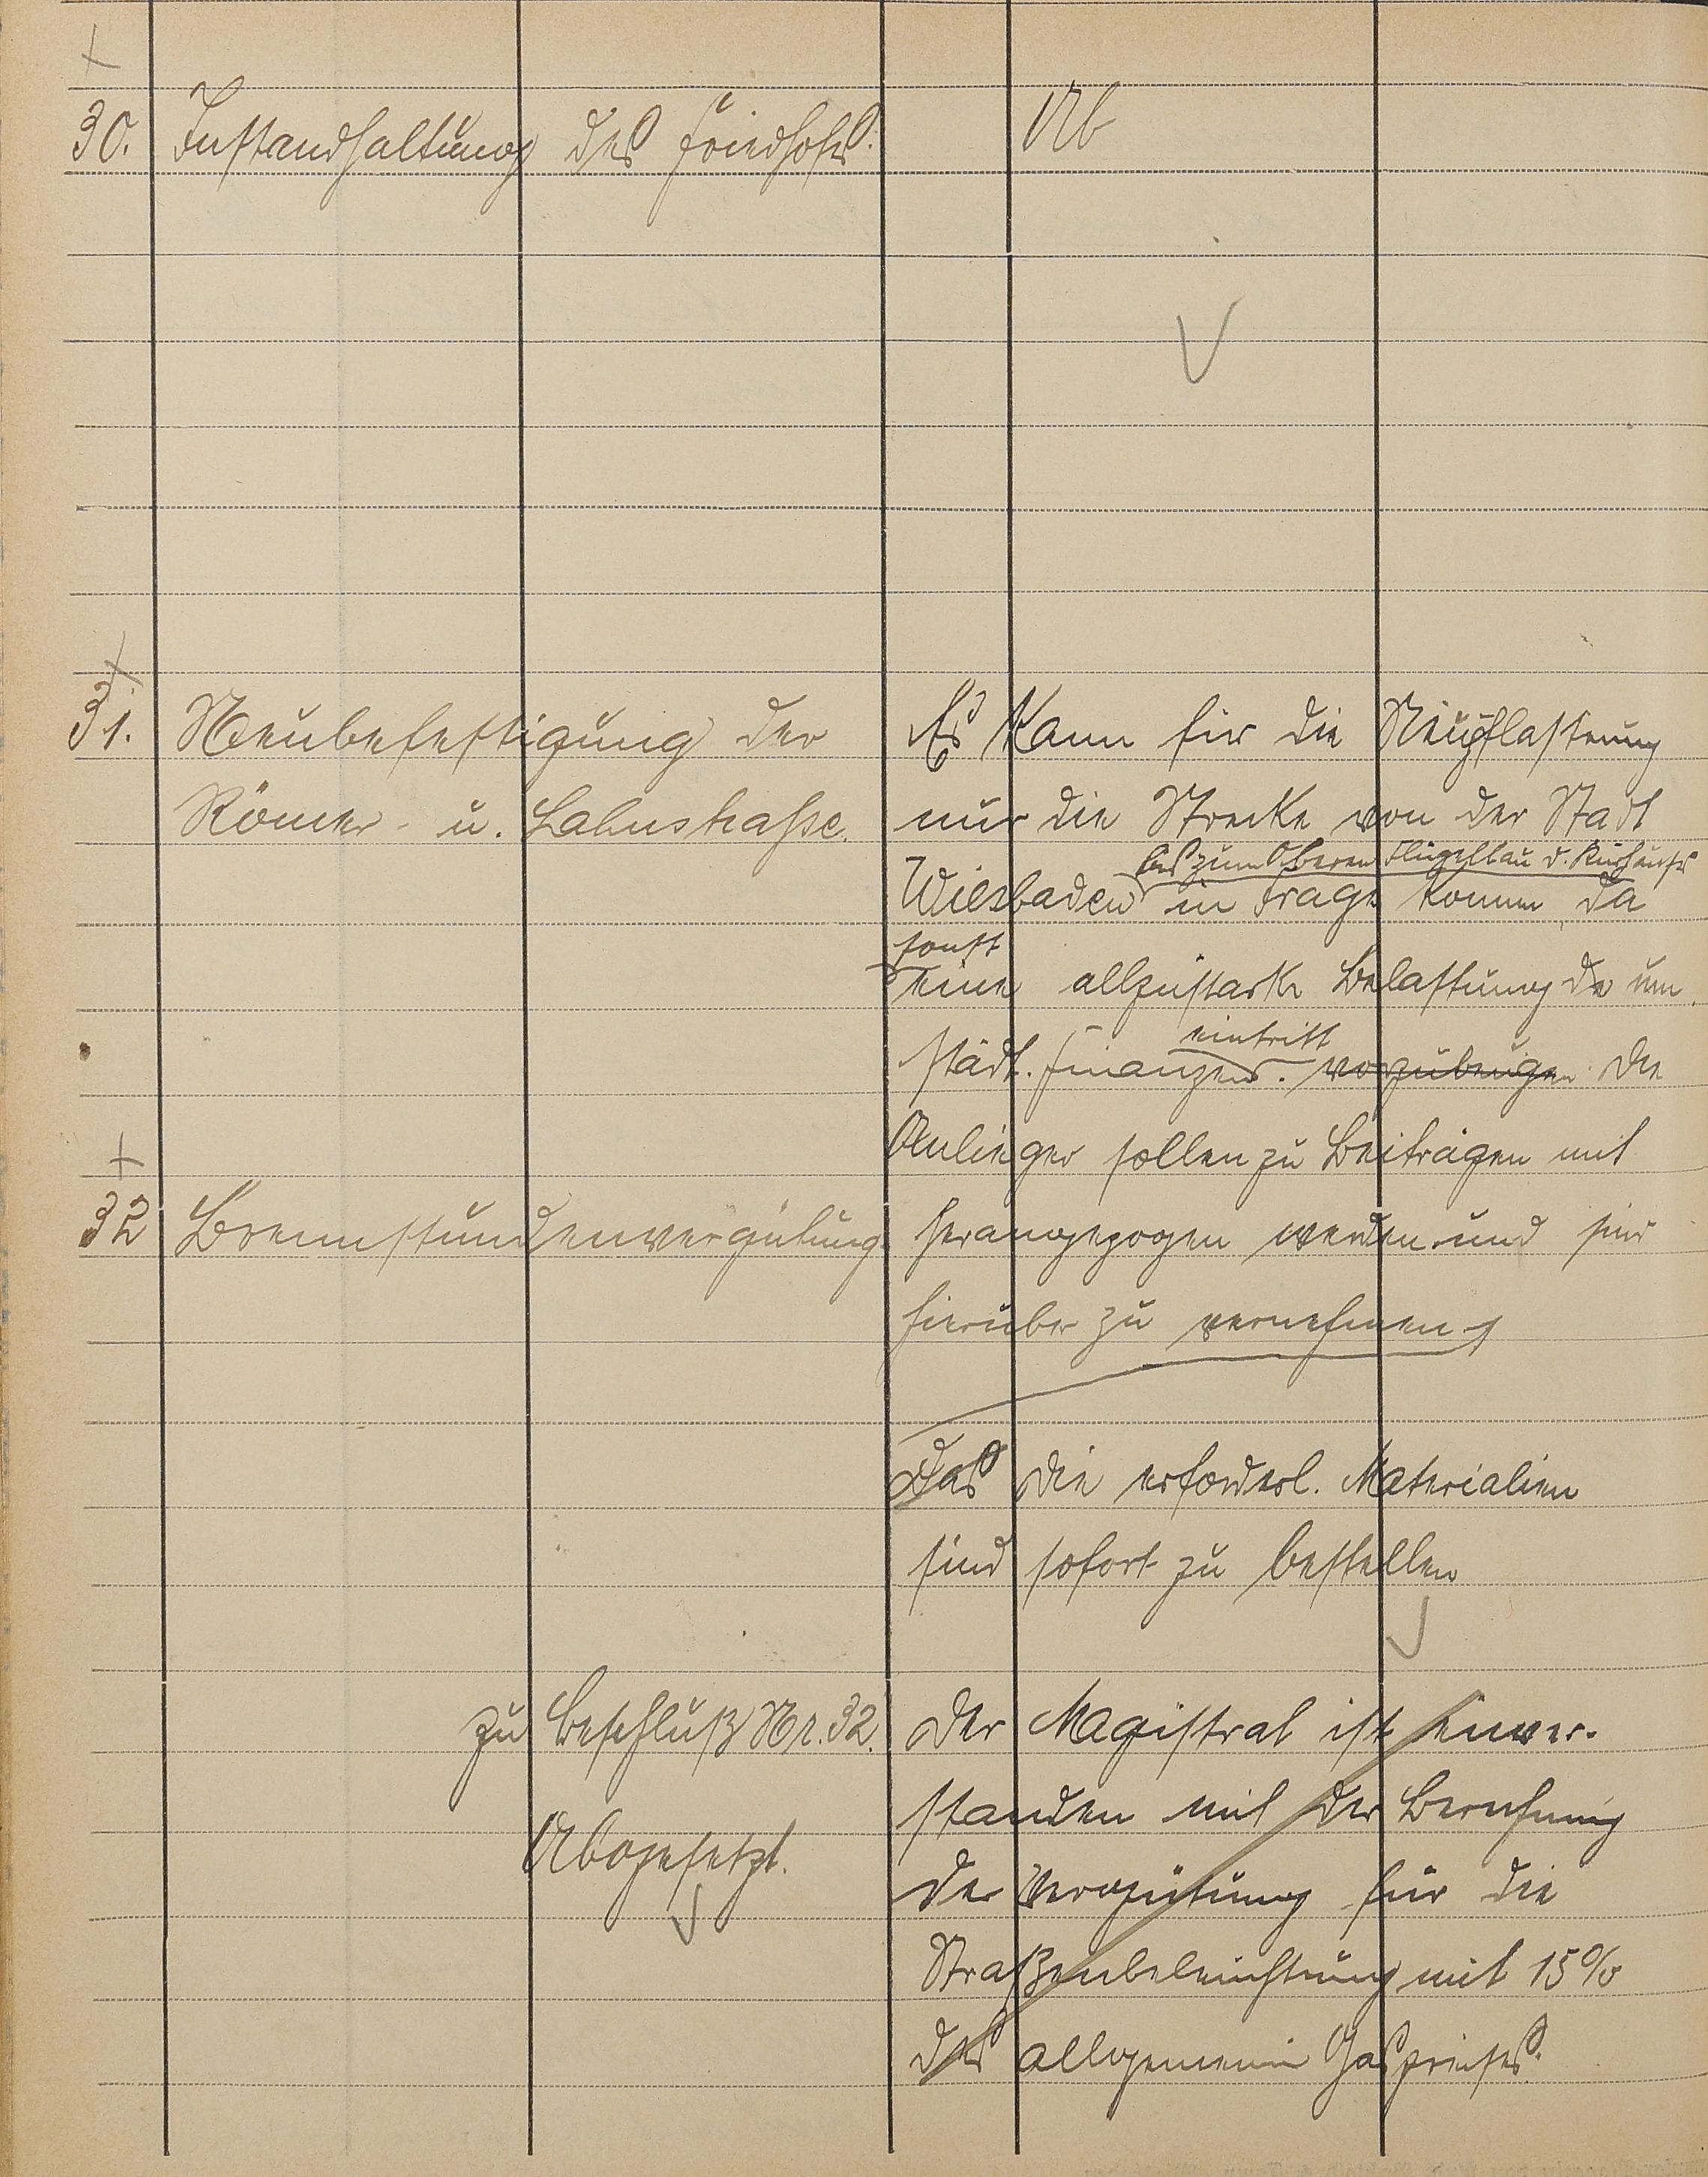 30. Instandhaltung des Friedhofs.
Ab
31. Neubefestigung der
Römer- u. Lahnstraße.
Es kann für die Neupflasterung
nur die Strecke von der Stadt
bis zum Oberen Flügelbau d. Kurhauses
Wiesbaden in Frage kommen, da
sonst
eine allzustarke Belastung der um
eintritt
städt. Finanzen. vorzubeugen. Die
Anlieger sollen zu Beiträgen mit
herangezogen werden und sind
hierüber zu vernehmen
32 Brennstundenvergütung.
Das die erforderl. Materialien
sind sofort zu bestellen
zu Beschluß Nr. 32.
Abgesetzt.
Der Magistrat ist einver-
standen mit der
der Vergütung für die
Straßenbeleuchtung mit 15%
des allgemeinen Gaspreises.